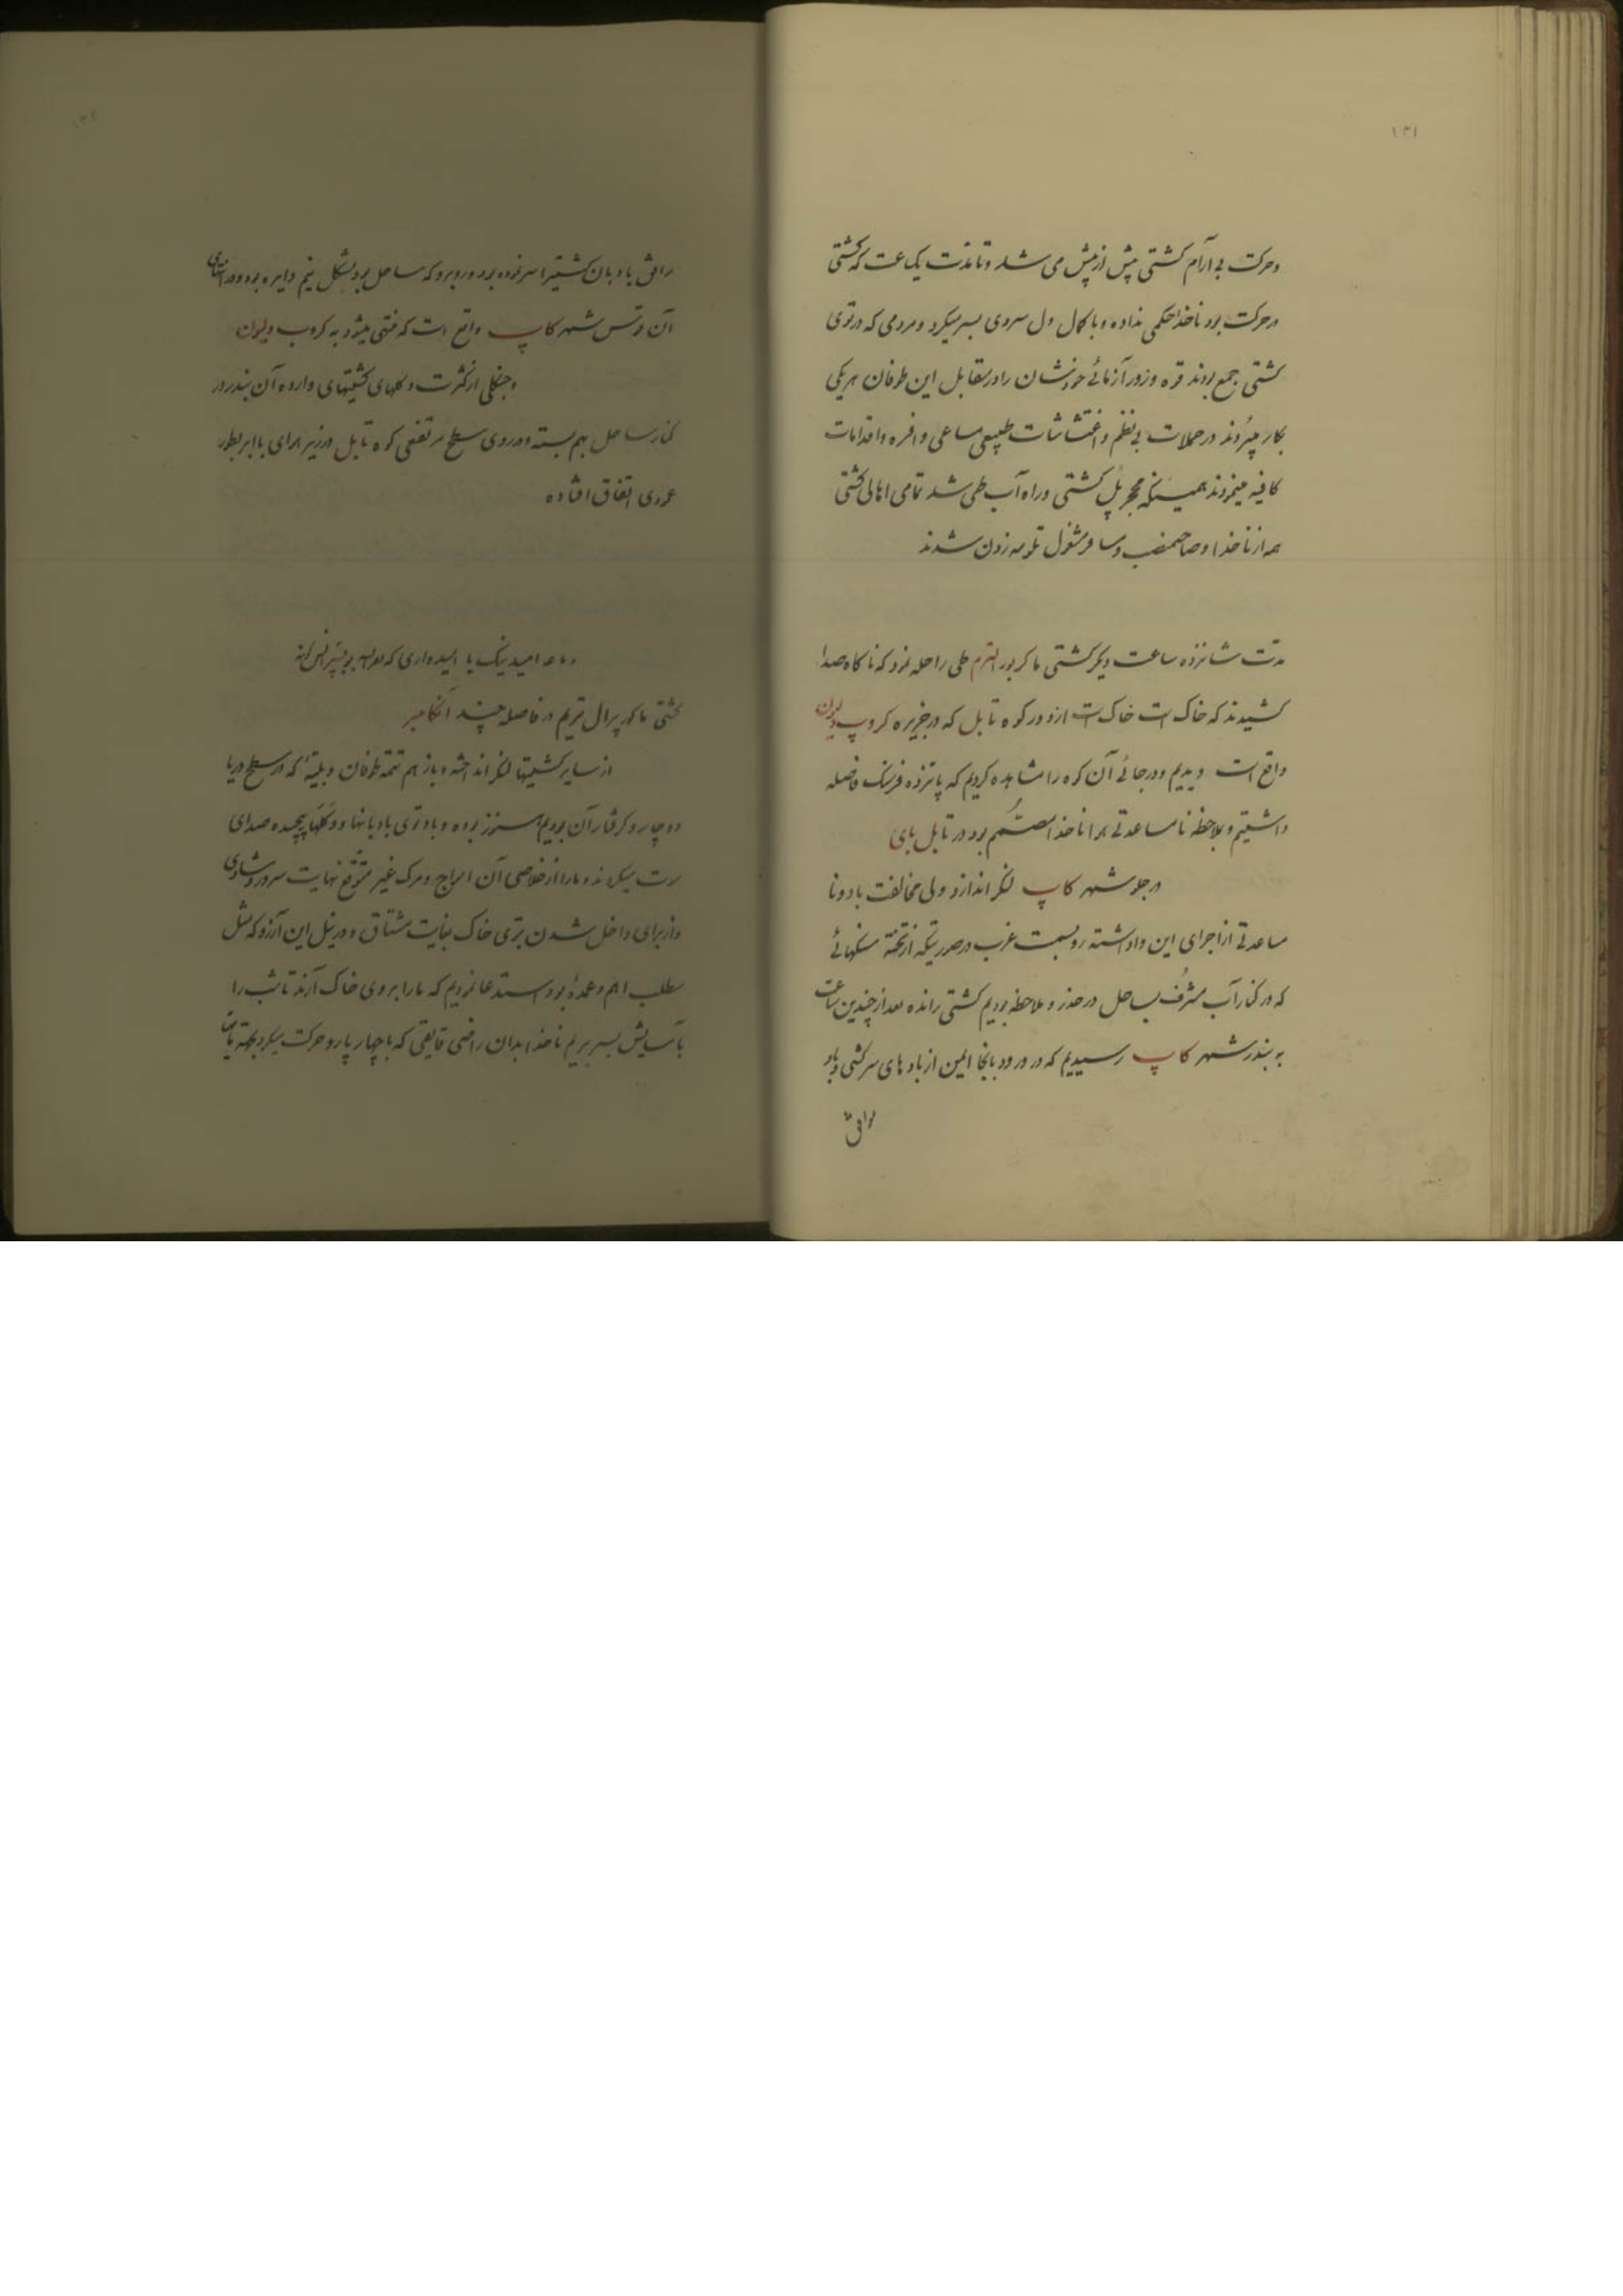 ۱۳۱
و حرکت بی آرام کشتی بیش از پیش می شد و تا مدت یکساعت که کشتی
در حرکت بود ناخدا حکمی نداده و با کمال دل سردی بسر میکرد و مردمی که در توی
کشتی جمع بودند قوه و زور آزمائی خودشان را در مقابل این طوفان هر یکی
بکار میبردند در حملات بی نظم و اغتشاشات طبیعی مساعی وافره و اقدامات
کافیه مینمودند همینکه پل کشتی و راه آب طی شد تمامی اهالی کشتی
همه از ناخدا و صاحبمنصب و مسافر مشغول تلومبه زدن شدند
مدت شانزده ساعت دیگر کشتی ماکربور الترم طی راحله نمود که ناگاه صدا
کشیدند که خاک است خاک است از دور کوه تابل که در جزیره کروپ دیون
واقع است دیدیم و در جائی آن کوه را مشاهده کردیم که پانزده فرسنگ فاصله
داشتیم و بملاحظه نامساعدتی هوا ناخدا مصمم بود در تابل بای
در جلو شهر کاپ لنگر اندازد ولی مخالفت باد و نا
مساعدتی از اجرای این واداشته رو بسمت غرب در صورتیکه از تخته سنگهائی
که در کنار آب مشرف بساحل در حذر و ملاحظه بودیم کشتی رانده بعد از چندین ساعت
به بندر شهر کاپ رسیدیم که در ورود بآنجا ایمن از بادهای سرکشی و باد
لوافق
بادبان کشتیرا سر نموده بود و روبرو که ساحل بود بشکل نیم دایره بود و در انتهای
آن شهر کاپ واقع است که منتهی میشود به کروپ دیون
و جنگلی از کثرت دکلهای کشتیهای وارده آن بندر در
کنار ساحل بهم بسته و در روی سطح مرتفعی کوه تابل در زیر هوای با ابر بطور
عمودی اتفاق افتاده
دماغه امید نیک یا امیدواری که بعربی
کشتی ماکور پرال تریم در فاصله چند آنکامبر
از سایر کشتیها لنگر انداخته و باز هم تتمه طوفان و بلیه که در سطح دریا
دوچار و گرفتار آن بودیم هنوز بوده و باد توی بادبانها و دکلها پیچیده صدای
میکردند و ما را از خلاصی آن امواج و مرگ غیر متوقع نهایت سرور و شادی
و از برای داخل شدن بتوی خاک بغایت مشتاق و در نیل این آرزو که مثل
مطلب اهم و عمده بود استدعا نمودیم که ما را بروی خاک آرند تا شب را
بآسایش بسر بریم ناخدا بدان راضی قایقی که با چهار پارو حرکت میکرد بجهة ما